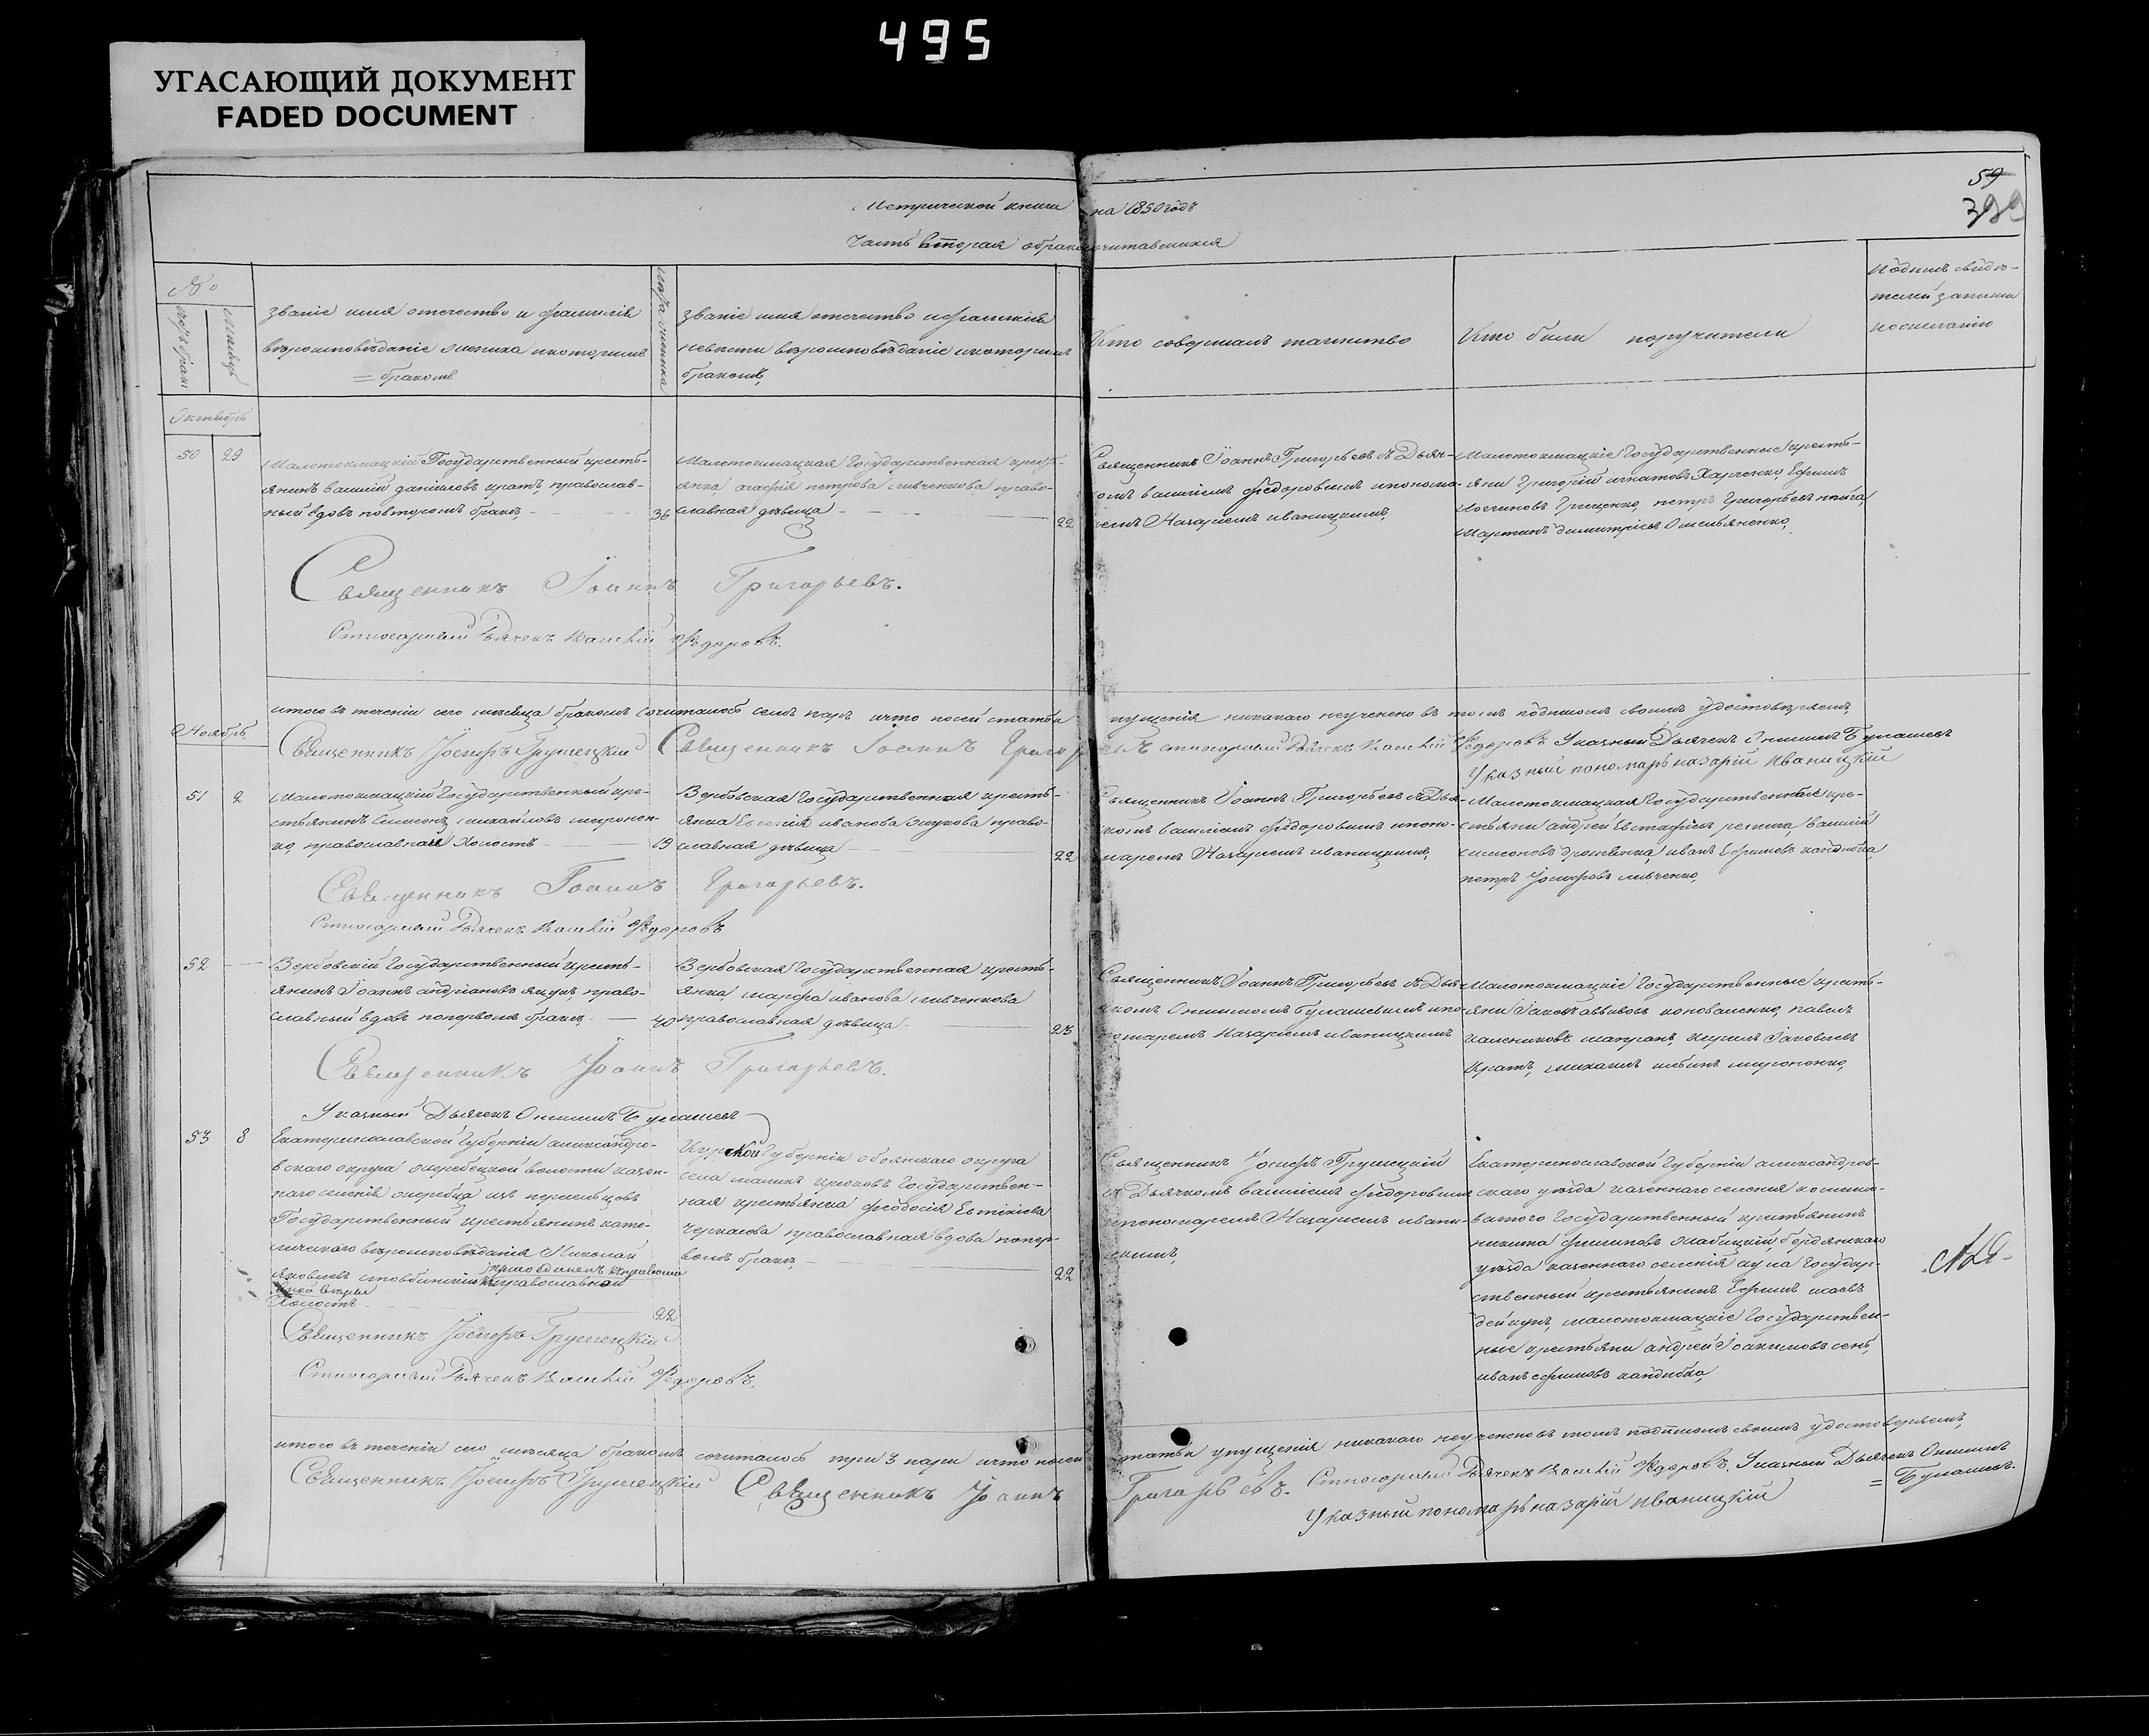 495
УГАСАЮЩИЙ ДОКУМЕНТ
FADED DOCUMENT
59
399
Метрической книги на 1850 годъ
Часть вторая о бракосочитавшихся
№
Месяцъ
званіе имя отечество и фамилія
вероисповѣданіе жениха и которымъ
= бракомъ
лѣта жениха
званіе имя отечество и фамилія
невѣсты вероисповѣданіе и которымъ
бракомъ,
Кто совершалъ таинство
Кто были поручители
Подпись свидѣ-
телей записи
по желанію
Октябрь
50 29
Малотокмацкій Государственный кресть-
янинъ василій даніиловъ кратъ, православ-
ный вдовъ повторомъ бракѣ,
36
Малотокмацкая Государственная кресть-
янка, агафія петрова ливченкова право-
славная дѣвица
22
Священникъ Іоаннъ Григорьевъ съ Дьяч-
комъ василіемъ Федоровымъ и понома-
ремъ Назаріемъ иваницкимъ,
Малотокмацкіе Государственные кресть-
яни Григорій игнатовъ Харченко, Ефимъ
Грищенко, петръ Григорьевъ книга,
Мартинъ димитріевъ Омельяненко,
Священникъ Іоаннъ Григорьевъ.
Стихарный Дьячекъ Василій Федоровъ.
итого въ теченіи сего мѣсяца бракомъ сочиталось семь паръ и что по сей статьи
пущенія никакаго неучинено въ томъ подписомъ своимъ удостовѣряемъ,
Ноябрь
Священникъ Іосифъ Грушецкій Священникъ Іоаннъ Григорьевъ стихарный Дьячекъ Василій Федоровъ Указный Дьячекъ Онисимъ Булашевъ
Указный пономарь назарій Иваницкій
51 2
Малотокмацкій Государственный кре-
стьянинъ Симеонъ михайловъ миронен-
ко, православный Холостъ
19
Вербовская Государственная кресть-
янка иванова жукова право-
славная дѣвица
22
Священникъ Іоаннъ Григорьевъ съ Дья-
комъ василіемъ Федоровымъ и поно-
маремъ Назаріемъ иваницкимъ,
Малотокмацкая Государственные кре-
стьяни андрей Евстафіевъ репика, василій
симоновъ иванъ Ефимовъ кандибка,
петръ Іосифовъ ливченко,
Священникъ Іоаннъ Григорьевъ.
Стихарный Дьячекъ Василій Федоровъ
52
Вербовскій Государственный кресть-
янинъ Іоаннъ андріановъ право-
славный вдовъ попервомъ бракѣ,
40
Вербовская Государственная кресть-
янка, марфа иванова ливченкова
православная дѣвица
23
Священникъ Іоаннъ Григорьевъ съ Дья-
комъ Онисимомъ Булашевымъ и по-
номаремъ Назаріемъ иваницкимъ
Малотокмацкіе Государственные кресть-
яни Іаковъ коноваленко, павелъ
калениковъ шапранъ, кирилъ Іаковлевъ
Кратъ, михаилъ мироненко,
Священникъ Іоаннъ Григорьевъ.
Указный Дьячекъ Онисимъ Булашевъ
53 8
Екатеринославской Губерніи александро-
вскаго округа жеребецкой волости казен-
наго селенія жеребца изъ переселенцовъ
Государственный крестьянинъ като-
лическаго вероисповѣданія Николай
Яковлевъ присоединенъ къ православной
Холостъ
22
Курской Губерніи обоянскаго округа
села крюковъ Государствен-
ная крестьянка феодосія Евтихіева
Черкасова православная вдова попер-
вомъ бракѣ,
22
Священникъ Іосифъ Грушецкій
съ Дьячкомъ василіемъ Федоровымъ
и пономаремъ Назаріемъ ивани-
цкимъ,
Екатеринославской Губерніи александров-
скаго уѣзда казеннаго селенія
Государственный крестьянинъ
никита филиповъ бердянскаго
уѣзда казеннаго селенія Государ-
ственный крестьянинъ Ефимъ исаевъ
дейкунъ, малотокмацкіе Государствен-
ные крестьяни андрей Іоакимовъ сень,
иванъ ефимовъ кандибка,
Священникъ Іосифъ Грушецкій
Стихарный Дьячекъ Василій Федоровъ.
итого въ теченіи сего мѣсяца бракомъ сочиталось три 3 пары и что по сей
статьи упущенія никакаго неучинено въ томъ подписомъ своимъ удостоверяемъ,
Священникъ Іосифъ Грушецкій Священникъ Іоаннъ Григорьевъ. Стихарный Дьячекъ Василій Федоровъ. Указный Дьячекъ Онисимъ
= Булашевъ.
Указный пономарь назарій иваницкій